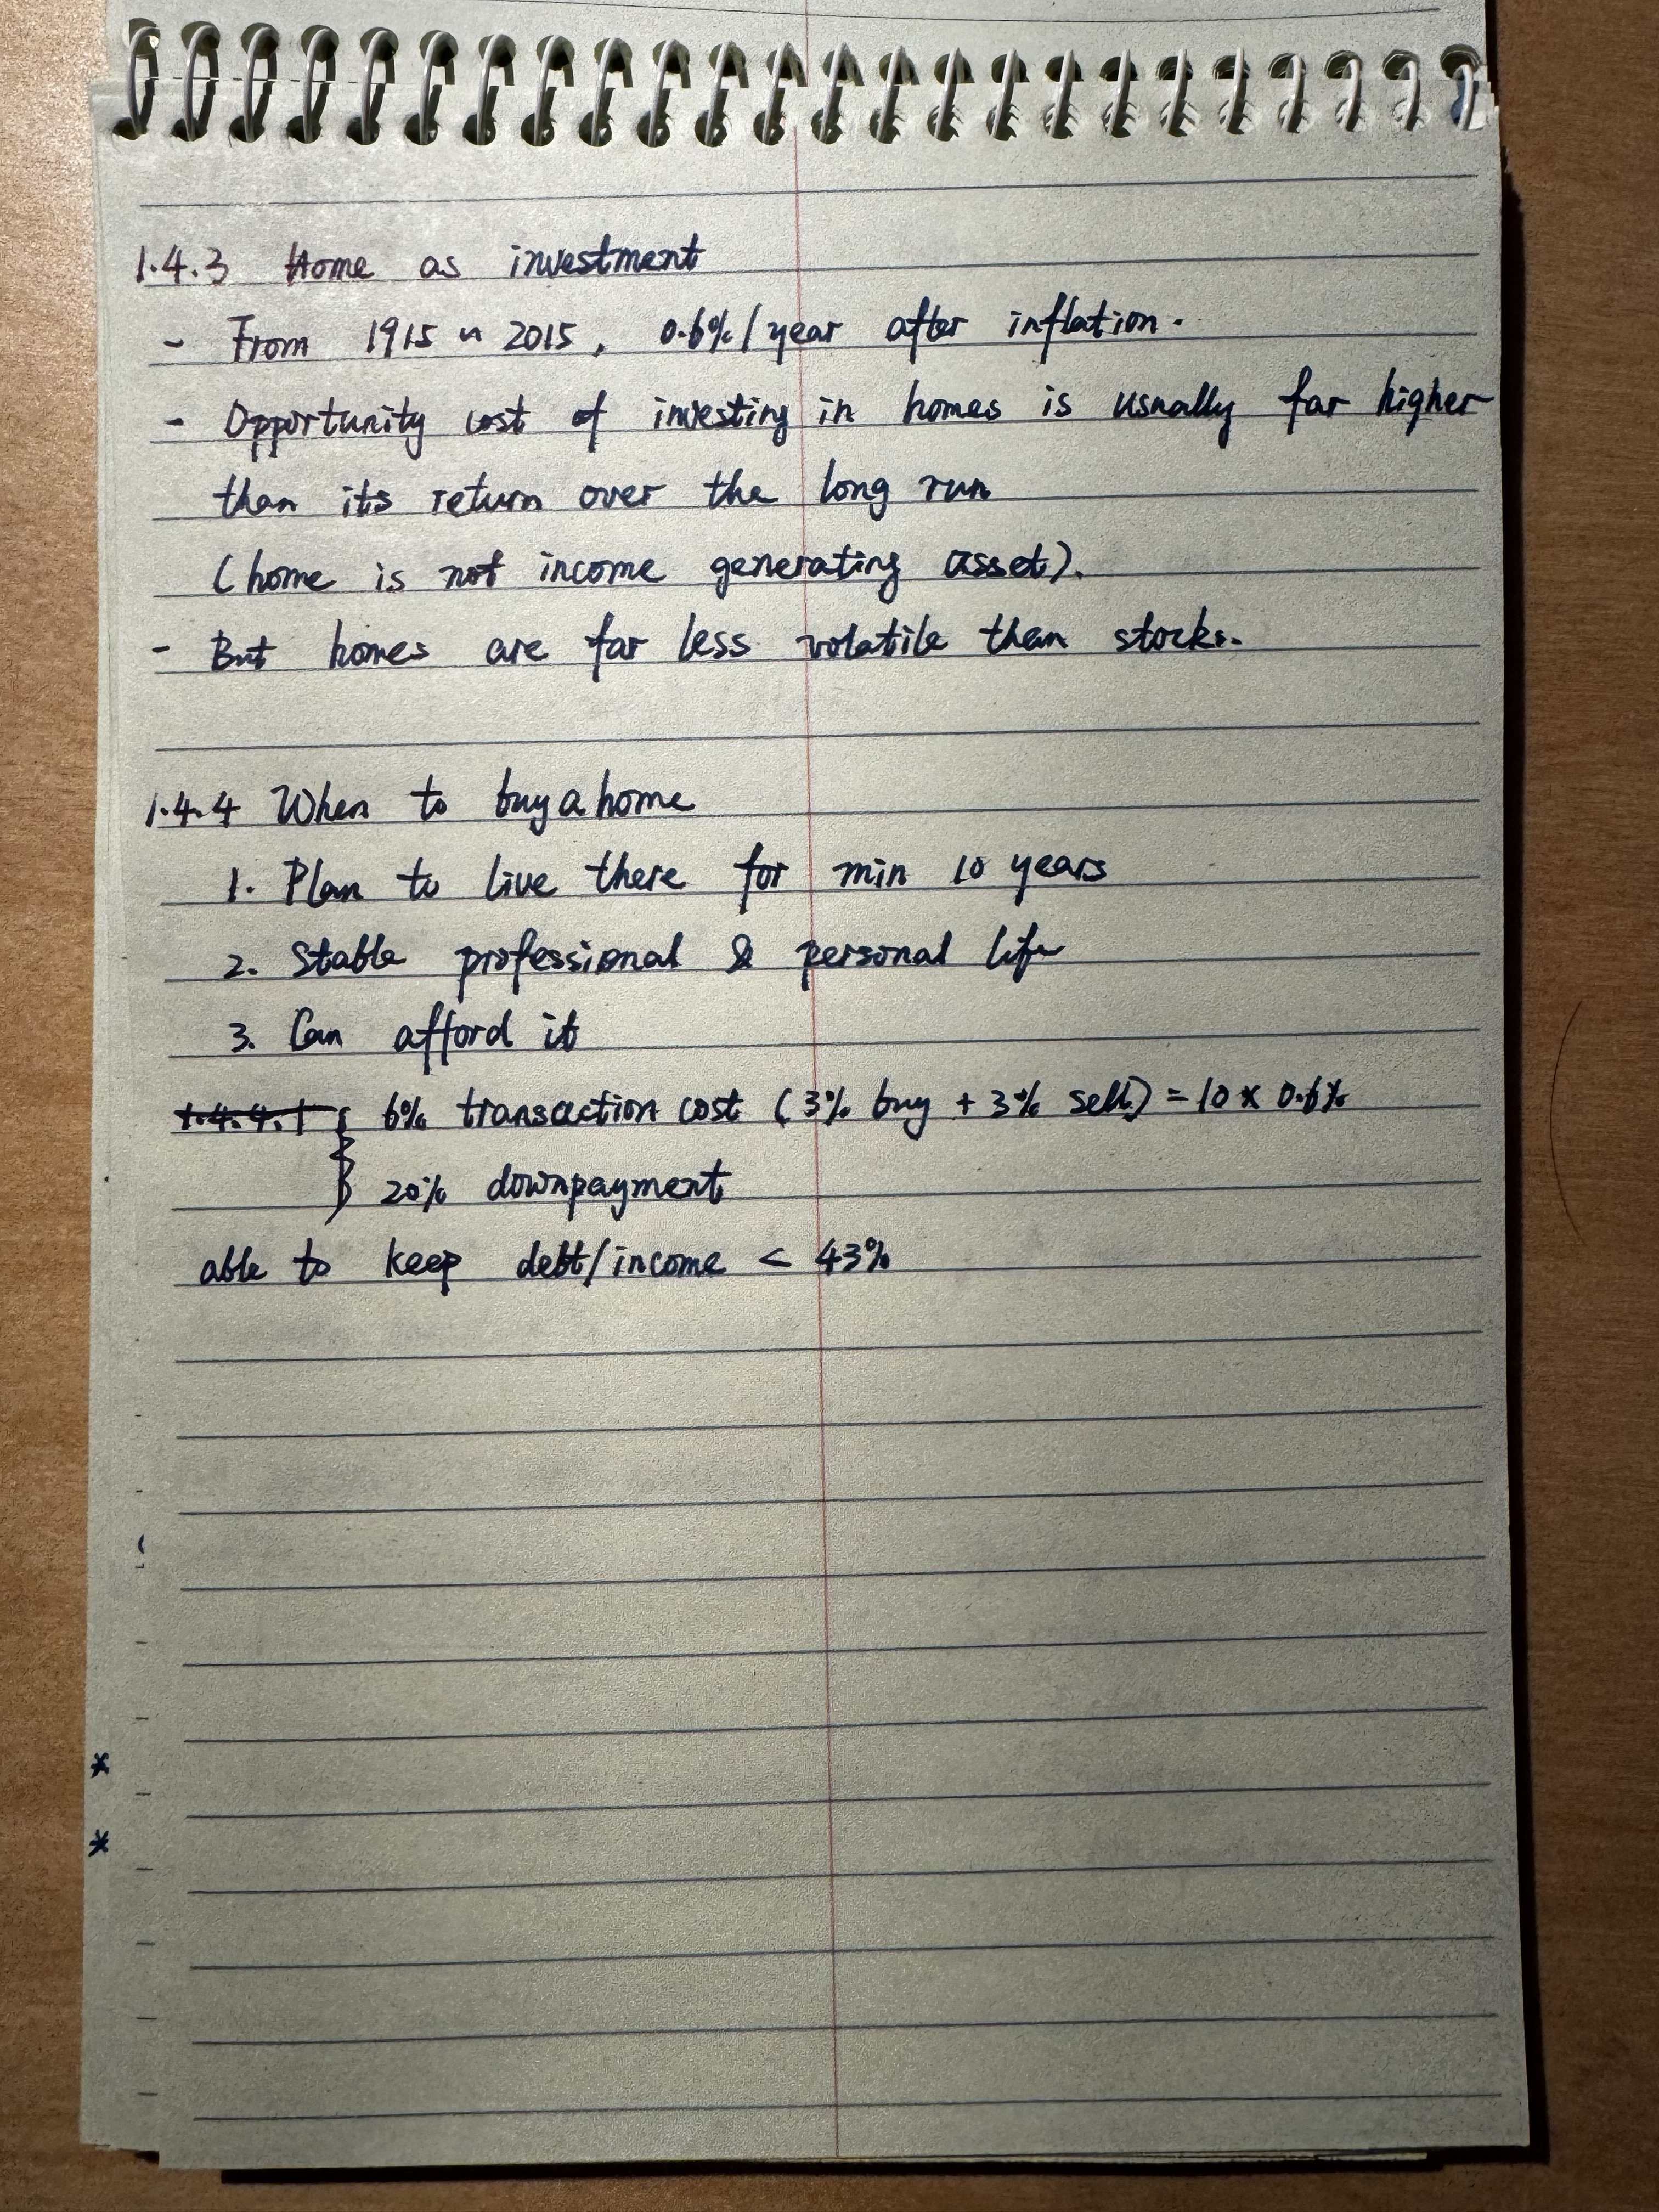 1.4.3 Home as investment
- From 1915 ~ 2015, 0.6%/year after inflation.
- Opportunity cost of investing in homes is usually far higher
than its return over the long run
(home is not income generating asset).
- But homes are far less volatile than stocks.
1.4.4 When to buy a home
1. Plan to live there for min 10 years
2. Stable professional & personal life
3. Can afford it
1.4.4.1 { 6% transaction cost (3% buy + 3% sell) = 10 × 0.6%
20% downpayment
able to keep debt/income < 43%
*
*